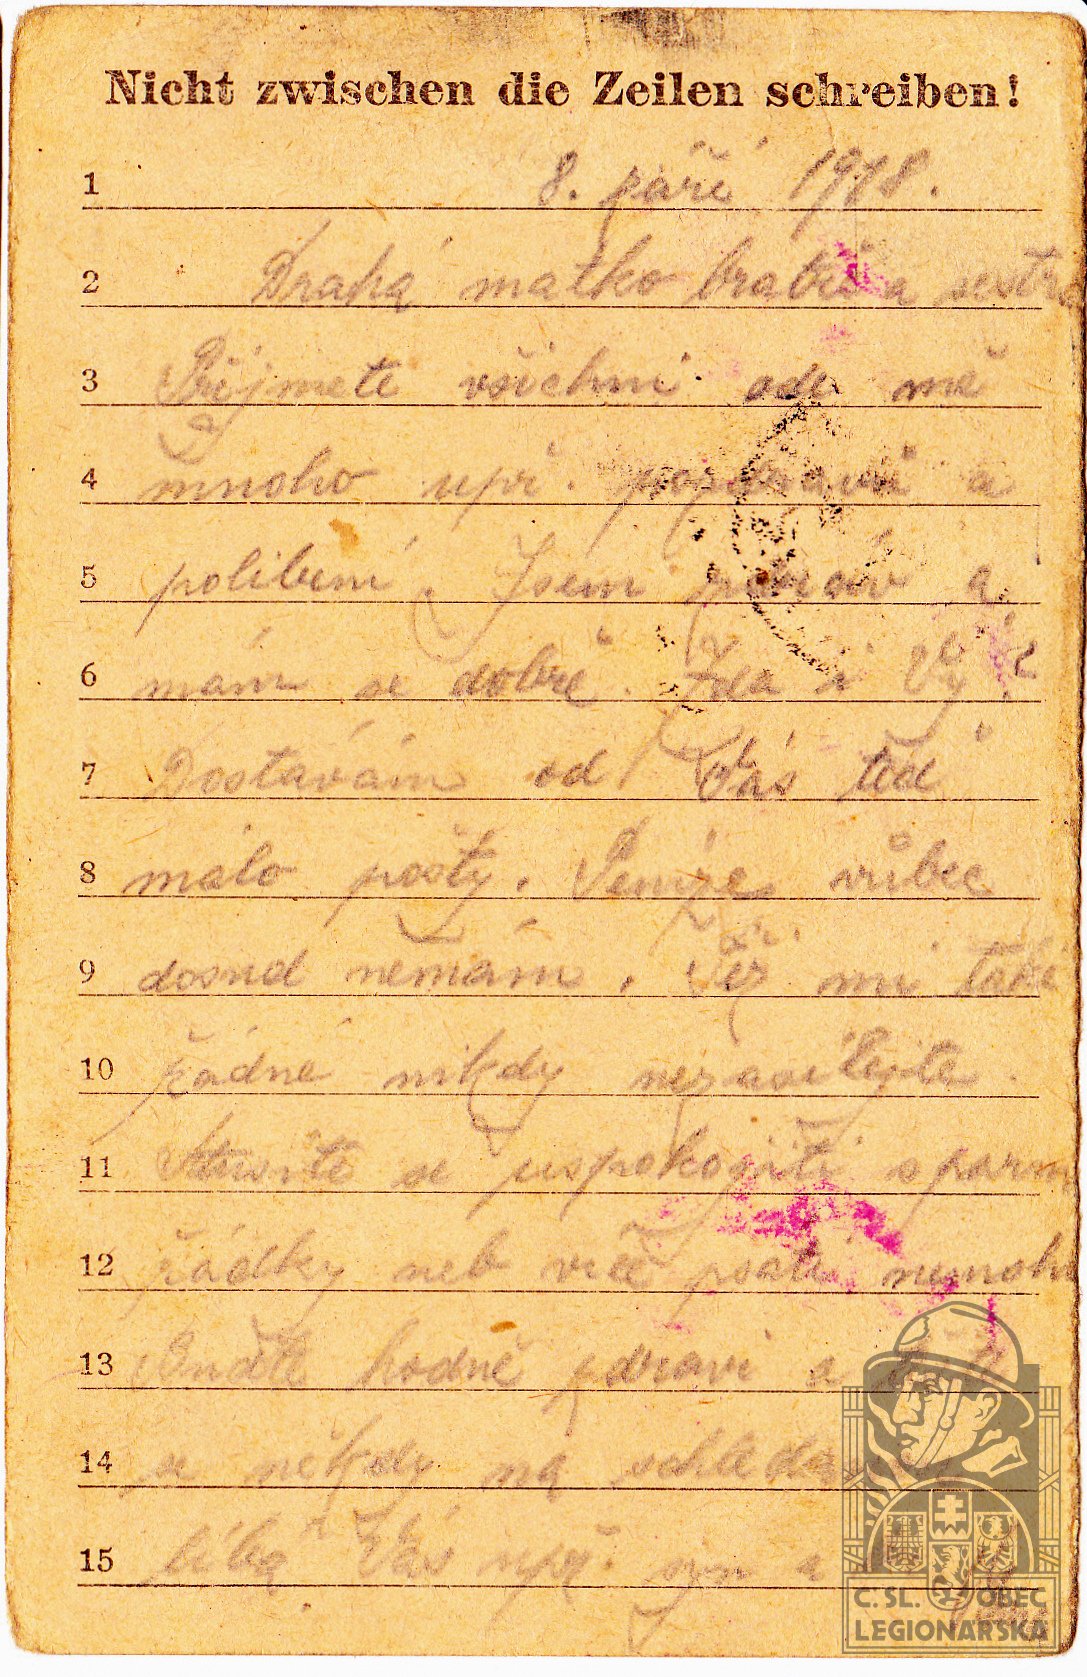 Nicht zwischen die Zeilen schreiben!
1 8. září 1918.
2 Drahá matko bratře a sestro
3 Přijmete všichni ode mě
4 mnoho upř. pozdravů a
5 políbení. Jsem zdráv a
6 mám se dobře. Zda i Vy?
7 Dostávám od Vás teď
8 málo pošty. Peníze vůbec
9 dosud nemám. Též mi také
10 žádné nikdy nezasílejte.
11 Musíte se uspokojiti s párm
12 řádky neb více psáti nemohu
13 Buďte hodně zdrávi a
14 se někdy na shledanou
15 líbá Vás upř. syn a
C. SL. OBEC
LEGIONÁŘSKÁ